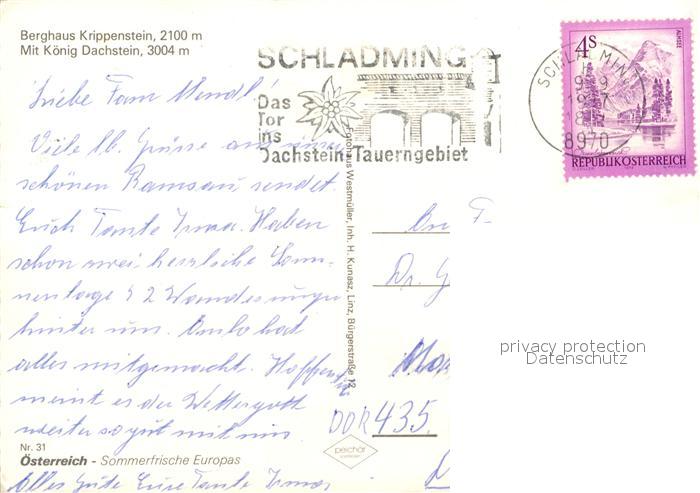 Berghaus Krippenstein, 2100 m
Mit König Dachstein, 3004 m
SCHLADMING
Das
Tor
ins
Dachstein-Tauerngebiet
SCHLADMING
8970
4S
ALMSEE
REPUBLIK ÖSTERREICH
Liebe Fam. Mendl!
Viele lb. Grüsse aus
schönen Ramsau sendet
Euch Tante Irma. Haben
schon zwei herrliche Son-
nentage & 2 Wanderungen
hinter uns. hat
alles mitgemacht. Hoffentlich
meint es der Wettergott
weiter so gut mit uns
Alles Gute Eure Tante Irma
Fotohaus Westmüller, Inh. H. Kunasz, Linz, Bürgerstraße 12
F
Dr. G
DDR 435
Nr. 31
Österreich - Sommerfrische Europas
privacy protection
Datenschutz